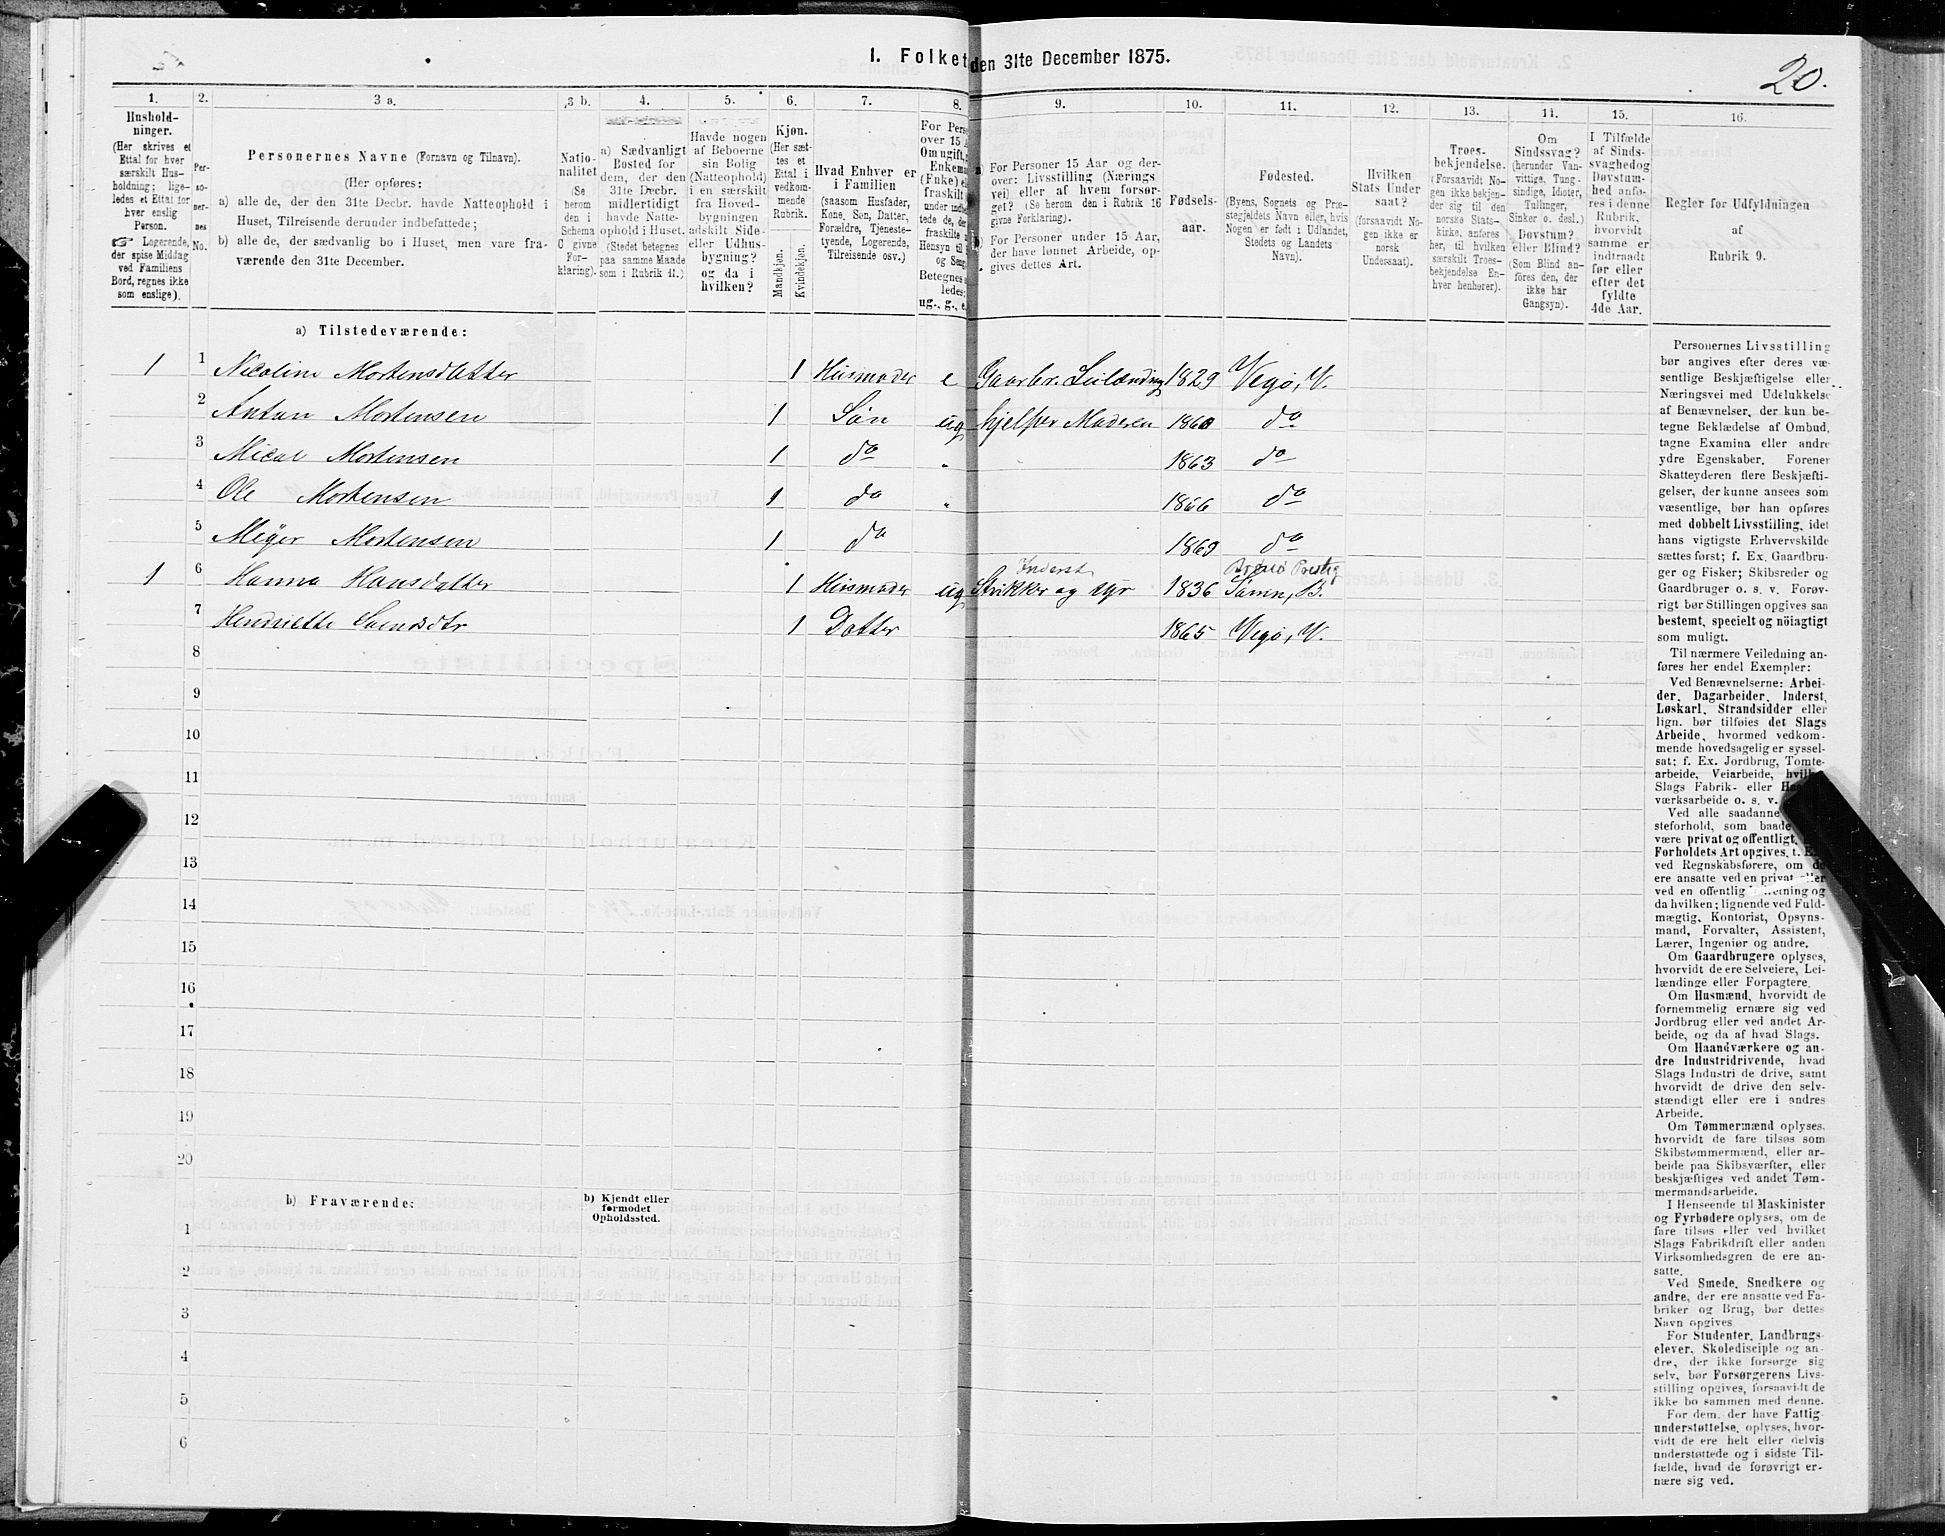 1. Folket den 31te December 1875.
20.
1.
2.
3 a.
3 b.
4.
5.
6.
7.
8.
9.
10.
11.
12.
13.
14.
15.
16.
Hushold-
ninger.
(Her skrives et
Ettal for hver
særskilt Hus-
holdning; lige-
ledes et Ettal for
hver enslig
Person.
☞ Logerende,
der spise Middag
ved Familiens
Bord, regnes ikke
som enslige).
Per-
so-
ner-
nes
No.
Personernes Navne (Fornavn og Tilnavn).
(Her opføres:
a) alle de, der den 31te Decbr. havde Natteophold i
Huset, Tilreisende derunder indbefattede;
b) alle de, der sædvanlig bo i Huset, men vare fra-
værende den 31te December.
Natio-
nalitet
(Se
herom
den i
Schema
C givne
For-
klaring).
a) Sædvanligt
Bosted for
dem, der den
31te Decbr.
midlertidigt
havde Natte-
ophold i Huset.
(Stedet betegnes
paa samme Maade
som i Rubrik 11.)
Havde nogen
af Beboerne
sin Bolig
(Natteophold)
i en særskilt
fra Hoved-
bygningen
adskilt Side-
eller Udhus-
bygning?
og da i
hvilken?
Kjøn.
(Her sæt-
tes et
Ettal i
vedkom-
mende
Rubrik.
Mandkjøn.
Kvindekjøn.
Hvad Enhver er
i Familien
(saasom Husfader,
Kone, Søn, Datter,
Forældre, Tjeneste-
tyende, Logerende,
Tilreisende osv.)
For Pers
over 15 A
Om ugift,
Enkema
(Enke) e
fraskilt
Betegnes
ledes:
ug., g., e.
a) For Personer 15 Aar og der-
over: Livsstilling (Nærings
vei) eller af hvem forsør-
get? (Se herom den i Rubrik 16
givne Forklaring).
b) For Personer under 15 Aar,
der have lønnet Arbeide, op-
gives dettes Art.
Fødsels-
aar.
Fødested.
(Byens, Sognets og Præ-
stegjeldets Navn eller, hvis
Nogen er født i Udlandet,
Stedets og Landets
Navn).
Hvilken
Stats Under
saat?
(forsaavidt No-
gen ikke er
norsk
Undersaat).
Troes-
bekjendelse.
(Forsaavidt No-
gen ikke bekjen-
der sig til den
norske Stats-
kirke, anføres
her, til hvilken
særskilt Troes-
bekjendelse En-
hver henhører).
Om
Sindssvag?
(herunder Van-
vittige, Tung-
sindige, Idioter,
Tullinger,
Sinker o. desl.)
Døvstum?
eller Blind?
(Som Blind an-
føres den, der
ikke har
Gangsyn).
I Tilfælde
af Sinds-
svaghed og
Døvstum-
hed anfø-
res i denne
Rubrik,
hvorvidt
samme er
indtraadt
før eller
efter det
fyldte
4de Aar.
Regler for Udfyldningen
af
Rubrik 9.
a) Tilstedeværende:
1 1 Nicoline Mortensdatter 1 Husmoder e Gaarbr. Leilænding 1829 Vegø, V.
2 Antan Mortensen 1 Søn ug hjelper Moderen 1860 do
3 Mical Mortensen 1 do " 1863 do
4 Ole Mortensen 1 do " 1866 do
5 Meyer Mortensen 1 do 1869 do
Inderst Brønø Præstg
1 6 Hanna Hansdatter 1 Husmoder ug Strikker og syr 1836 Sømn, B.
7 Henriette Svendsdtr 1 Datter 1865 Vegø, V.
8
9
10
11
12
13
14
15
16
17
18
19
20
b) Fraværende:
b) Kjendt eller
formodet
Opholdssted.
1
2
3
4
5
6
Personernes Livsstilling
bør angives efter deres væ-
sentlige Beskjæftigelse eller
Næringsvei med Udelukkelse
af Benævnelser, der kun be-
tegne Beklædelse af Ombud,
tagne Examina eller andre
ydre Egenskaber. Forener
Skatteyderen flere Beskjæfti-
gelser, der kunne ansees som
væsentlige, bør han opføres
med dobbelt Livsstilling, idet
hans vigtigste Erhvervskilde
sættes først; f. Ex. Gaardbru-
ger og Fisker; Skibsreder og
Gaardbruger o. s. v. Forøv-
rigt bør Stillingen opgives saa
bestemt, specielt og nöiagtigt
som muligt.
Til nærmere Veiledning an-
føres her endel Exempler:
Ved Benævnelserne: Arbei-
der, Dagarbeider, Inderst,
Løskarl, Strandsidder eller
lign. bør tilføies det Slags
Arbeide, hvormed vedkom-
mende hovedsagelig er syssel-
sat; f. Ex. Jordbrug, Tomte-
arbeide, Veiarbeide, hvilket
Slags Fabrik- eller Haand-
værksarbeide o. s. v.
Ved alle saadanne
steforhold, som baade
være privat og offentligt,
Forholdets Art opgives, t. Ex.
ved Regnskabsførere, om de
ere ansatte ved en privat eller
ved en offentlig Indretning og
da hvilken; lignende ved Fuld-
mægtig, Kontorist, Opsyns-
mand, Forvalter, Assistent,
Lærer, Ingeniør og andre.
Om Gaardbrugere oplyses,
hvorvidt de ere Selveiere, Lei-
lændinge eller Forpagtere.
Om Husmænd, hvorvidt de
fornemmelig ernære sig ved
Jordbrug eller ved andet Ar-
beide, og da af hvad Slags.
Om Haandværkere og an-
dre Industridrivende, hvad
Slags Industri de drive, samt
hvorvidt de drive den selv-
stændigt eller ere i andres
Arbeide.
Om Tømmermænd oplyses,
hvorvidt de fare tilsøs som
Skibstømmermænd, eller ar-
beide paa Skibsværfter, eller
beskjæftiges ved andet Tøm-
mermandsarbeide.
I Henseende til Maskinister
og Fyrbødere oplyses, om de
fare tilsøs eller ved hvilket
Slags Fabrikdrift eller anden
Virksomhedsgren de ere an-
satte.
Ved Smede, Snedkere og
andre, der ere ansatte ved Fa-
briker og Brug, bør dettes
Navn opgives
For Studenter, Landbrugs-
elever, Skoledisciple og an-
dre, der ikke forsørge sig
selv, bør Forsørgerens Livs-
stilling opgives, forsaavidt de
ikke bo sammen med denne.
For dem, der have Fattig-
understøttelse, oplyses, hvor-
vidt de ere helt eller delvis
understøttede og i sidste Til-
fælde, hvad de forøvrigt er-
nære sig ved.